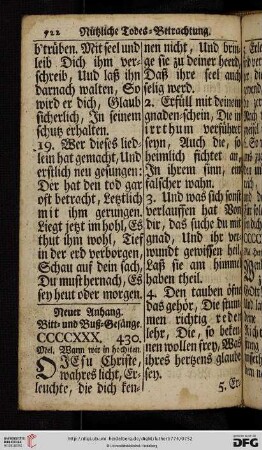 922 Nützliche Todes-Betrachtung.
b'trüben. Mit seel und
leib Dich ihm ver-
schreib, Und laß ihn
darnach walten, So
wird er dich, Glaub
sicherlich, In seinem
schutz erhalten.
19. Wer dieses lied-
lein hat gemacht, Und
erstlich neu gesungen:
Der hat den tod gar
oft betracht, Letztlich
mit ihm gerungen.
Liegt jetzt im hohl, Es
thut ihm wohl, Tief
in der erd verborgen,
Schau auf dein sach,
Du must hernach, Es
sey heut oder morgen.
Neuer Anhang.
Bitt- und Buß-Gesänge.
CCCCXXX. 430.
Mel. Wann wir in höchsten
O JEsu Christe,
wahres licht, Er-
leuchte, die dich ken-
nen nicht, Und brin-
ge sie zu deiner heerd,
Daß ihre seel auch
selig werd.
2. Erfüll mit deinem
gnaden-schein, Die in
irrthum verführet
seyn, Auch die, so
heimlich fichtet an,
In ihrem sinn, ein
falscher wahn.
3. Und was sich sonst
verlauffen hat Von
dir, das suche du mit
gnad, Und ihr ver-
wundt gewissen heil,
Laß sie am himmel
haben theil.
4. Den tauben öfne
das gehör, Die stum-
men richtig reden
lehr, Die, so beken-
nen wollen frey, Was
ihres hertzens glaube
sey.
5. Er-